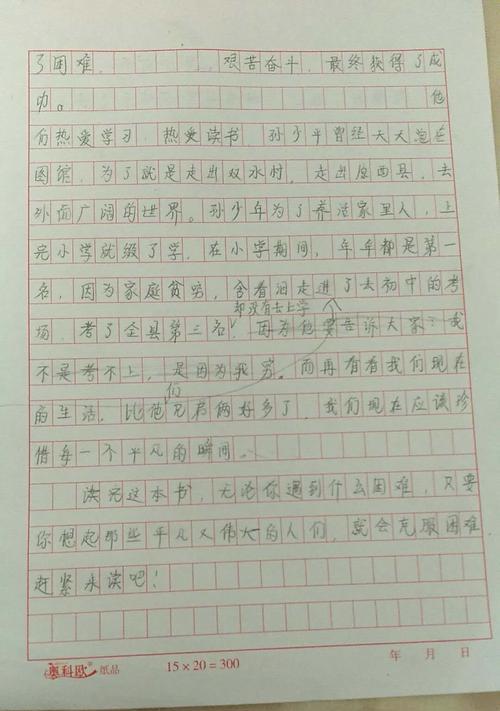 了困难。 艰苦奋斗，最终获得了成
功。 他
们热爱学习，热爱读书，孙少平曾经天天泡在
图馆，为了就是走出双水村，走出原西县，去
外面广阔的世界。孙少年为了养活家里人，上
完小学就缀了学，在小学期间，年年都是第一
名，因为家庭贫穷，含着泪走进了去初中的考
却没有去上学
场，考了全县第三名，因为他要告诉大家：我
不是考不上，是因为我穷。而再看看我们现在
们
的生活，比他兄弟俩好多了，我们现在应该珍
惜每一个平凡的瞬间。
读完这本书，无论你遇到什么困难，只要
你想起那些平凡又伟大的人们，就会克服困难，
赶紧来读吧！
奥科欧 纸品 15×20=300 年 月 日